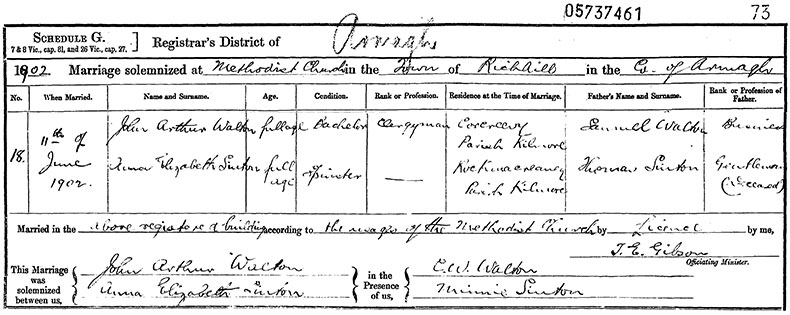 05737461 73
SCHEDULE G.
7 & 8 Vic., cap. 81, and 26 Vic., cap. 27.
Registrar's District of Armagh
1902. Marriage solemnized at Methodist Church in the Town of Richhill in the Co. of Armagh
No. When Married. Name and Surname. Age. Condition. Rank or Profession. Residence at the Time of Marriage. Father's Name and Surname. Rank or Profession of Father.
18. 11th of June 1902. John Arthur Walton full age Bachelor Clergyman Corcreevy Parish Kilmore Samuel Walton Business
Anna Elizabeth Sinton full age Spinster — Rockmacreany Parish Kilmore Thomas Sinton Gentleman (Deceased)
Married in the above registered building according to the usages of the Methodist Church by License by me,
T. E. Gibson
Officiating Minister.
This Marriage was solemnized between us, John Arthur Walton in the Presence of us, C. W. Walton
Anna Elizabeth Sinton Minnie Sinton